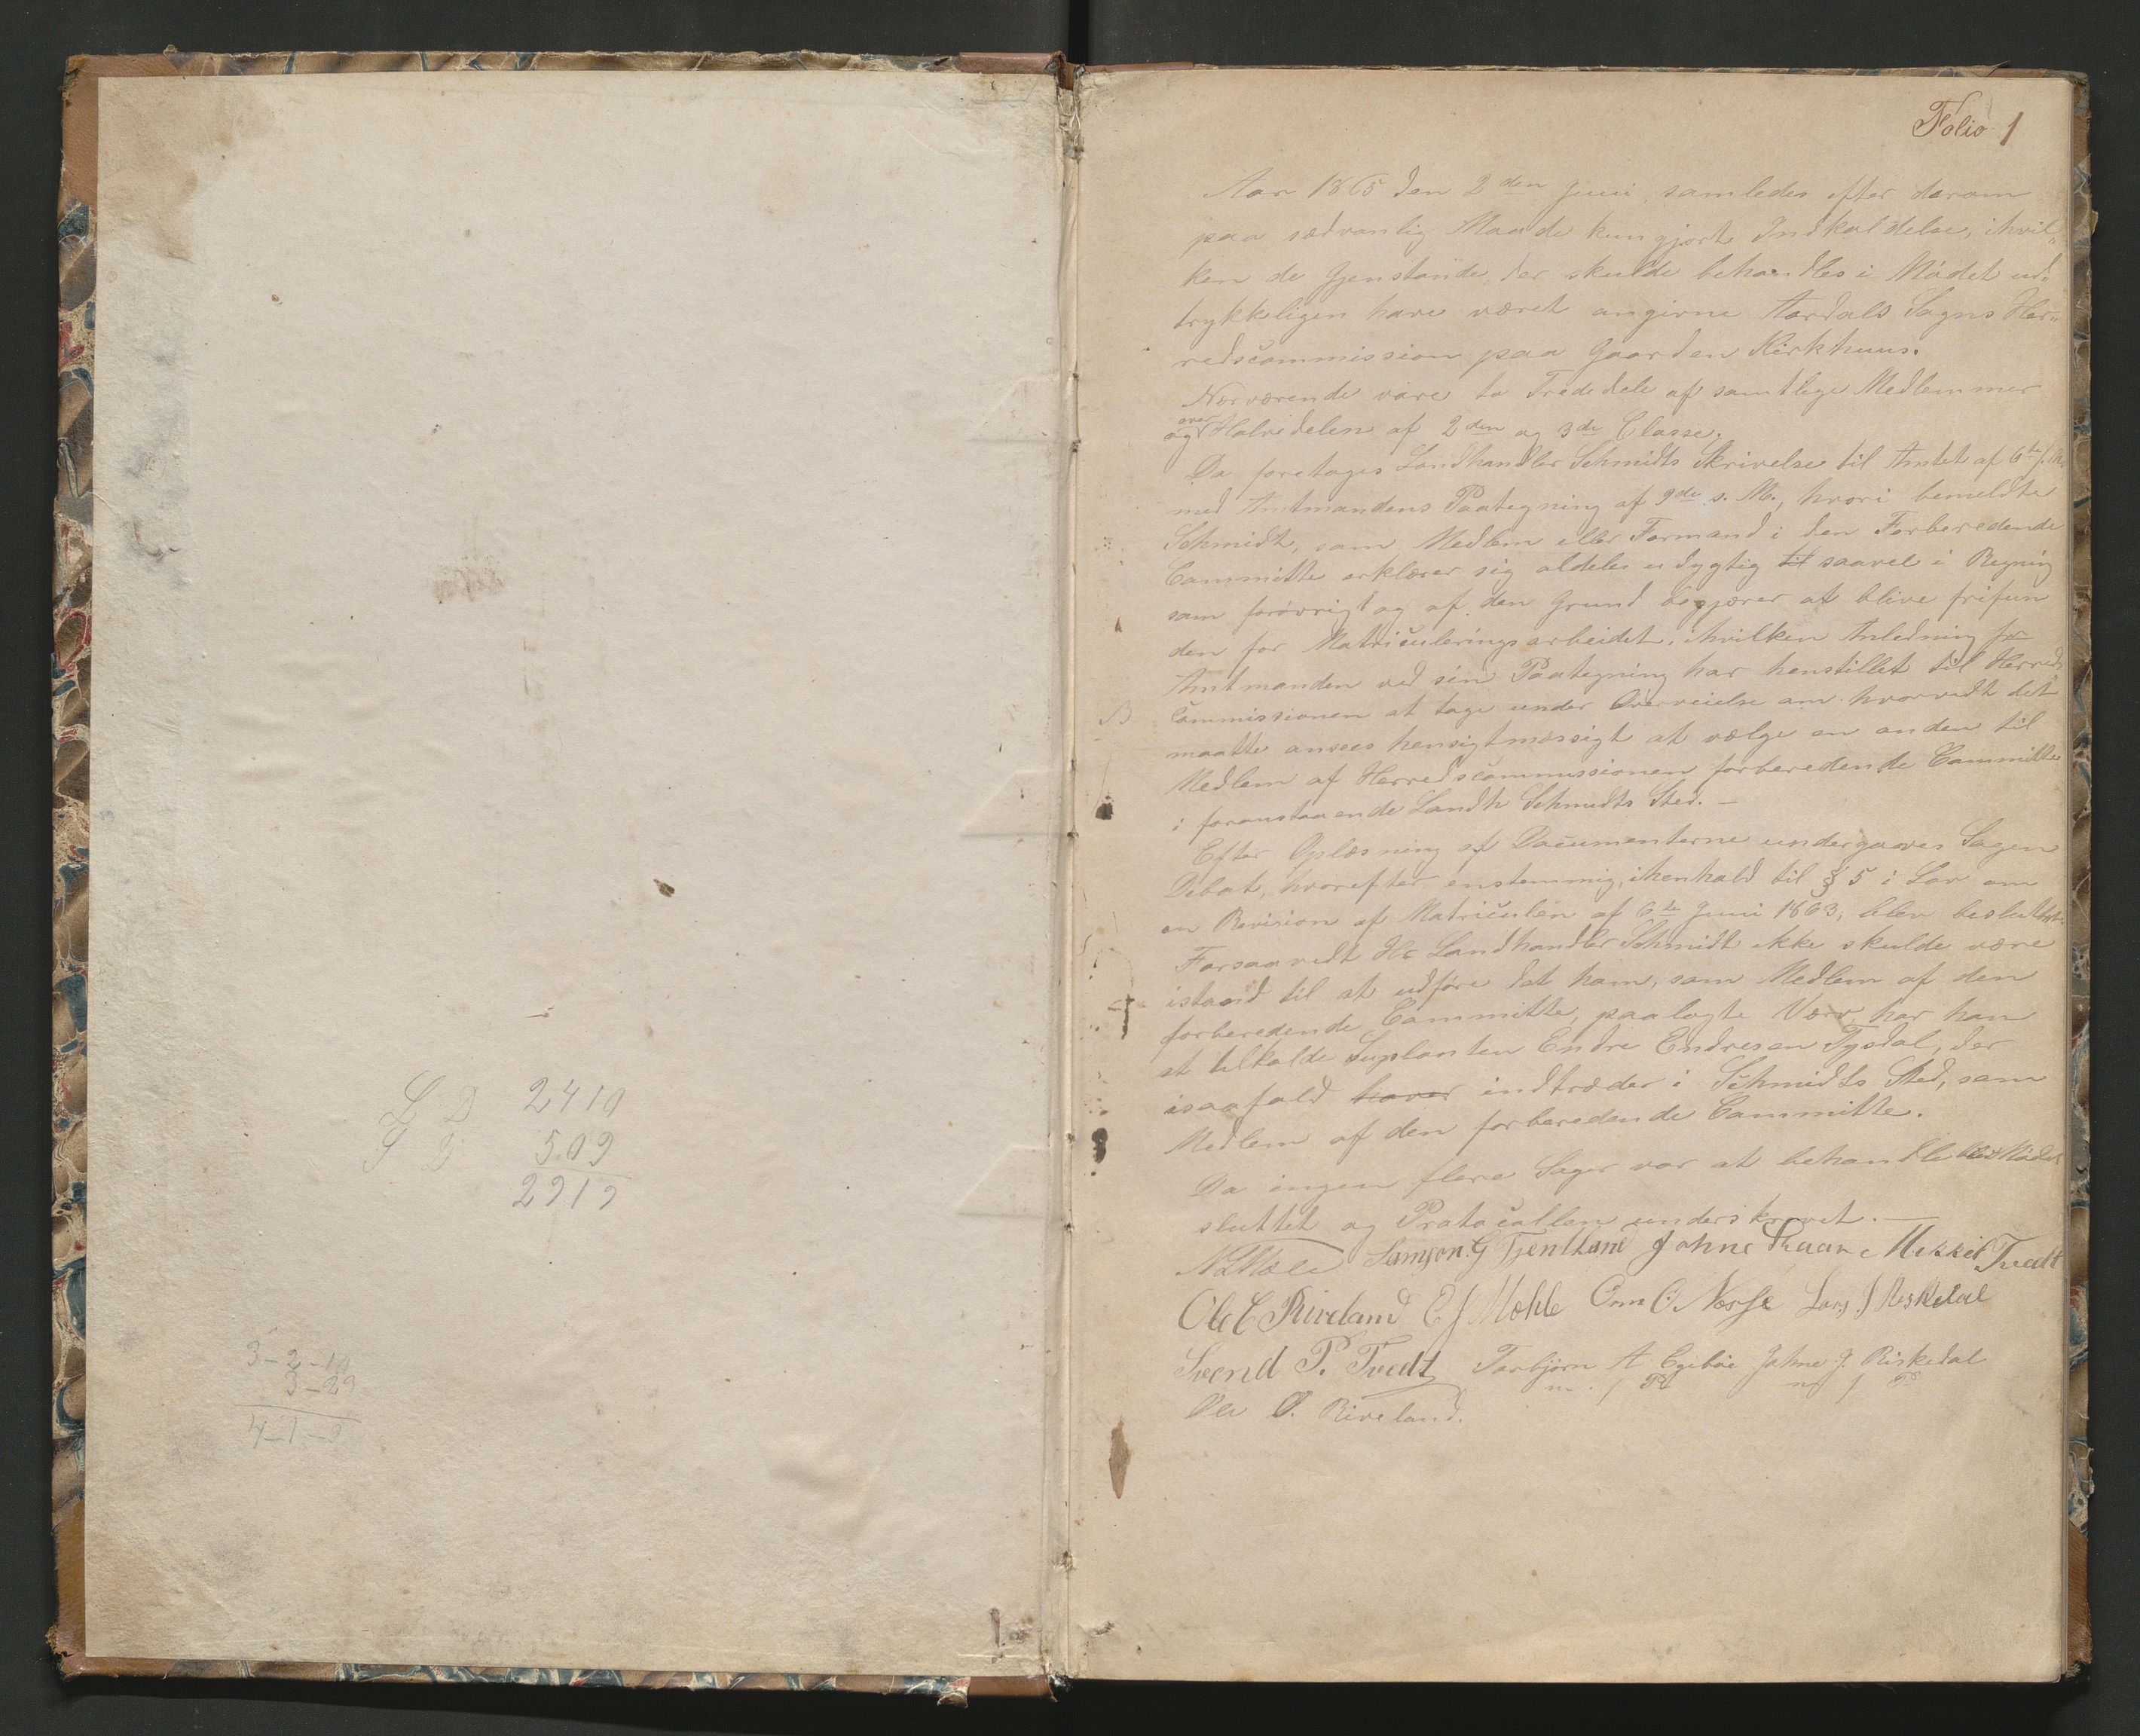 L D 2410
S D 509
2919
3-2-10
3-29
4-1-9
Folio 1
Aar 1865 den 2den Juni, samledes efter derom
paa sædvanlig Maade kungjort Indkaldelse, ihvil-
ken de Gjenstande, der skulde behandles i Mödet ud-
trykkeligen have været angivne Aardals Sogns Her-
redscommission paa Gaarden Kirkhuus.
Nærværende vare to Trededele af samtlige Medlemmer
og over Halvedelen af 2den og 3de Classe.
Da foretages Landhandler Schmidts Skrivelse til Amtet af 6te f. M.
med Amtmandens Paategning af 9de s. M., hvori bemeldte
Schmidt, som Medlem eller Formand i den Forberedende
Committe erklærer sig aldeles udygtig til saavel i Regning
som forövrigt og af den Grund begjærer at blive frifun
den for Matriculeringsarbeidet, ihvilken Anledning
Amtmanden ved sin Paategning har henstillet til Herreds
Commissionen at tage under Overveielse om hvorvidt det
maatte ansees hensigtmæssigt at vælge en anden til
Medlem af Herredscommissionen forberedende Committe
i foranstaaende Landh Schmidts Sted. –
Efter Oplæsning af Documenterne undergaves Sagen
Debat, hvorefter enstemmig, ihenhold til § 5 i Lov om
en Revision af Matriculen af 6te Juni 1863, blev besluttet:
Forsaavidt Hr Landhandler Schmidt ikke skulde være
istand til at udföre det ham, som Medlem af den
forberedende Committe, paalagte Værv, har han
at tilkalde Suplanten Endre Endresen Tysdal, der
isaafald haver indtræder i Schmidts Sted, som
Medlem af den forberedende Committe.
Da ingen flere Sager var at behandle blev Mödet
sluttet og Protocollen underskrevet. –
Samson G Tjentland Johne Mekkel Tvedt
Ole C Riveland E J Mæhle Onn O. Næsse Lars J Riskedal
Svend P. Tvedt Torbjörn A Egeböe Johne J. Riskedal
m. f P m f P
Ole O. Riveland.